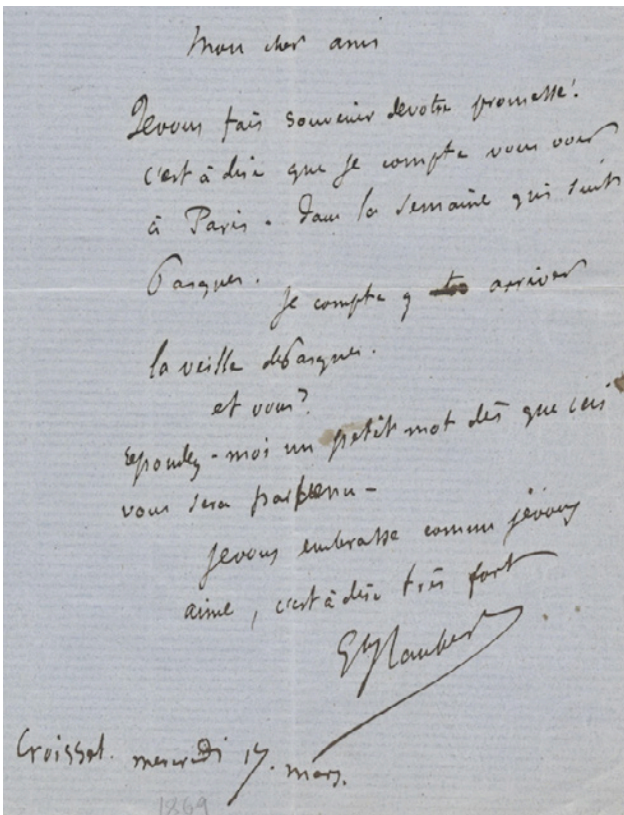 Mon cher ami
Je vous fais souvenir de votre promesse!
c'est à dire que je compte vous voir
à Paris. dans la semaine qui suit
Pasques.
je compte y arriver
la veille de Pasques.
et vous?
répondez-moi un petit mot dès que ceci
vous sera parvenu -
je vous embrasse comme je vous
aime, c'est à dire très fort
Gve Flaubert
Croisset. mercredi 17. mars.
1869